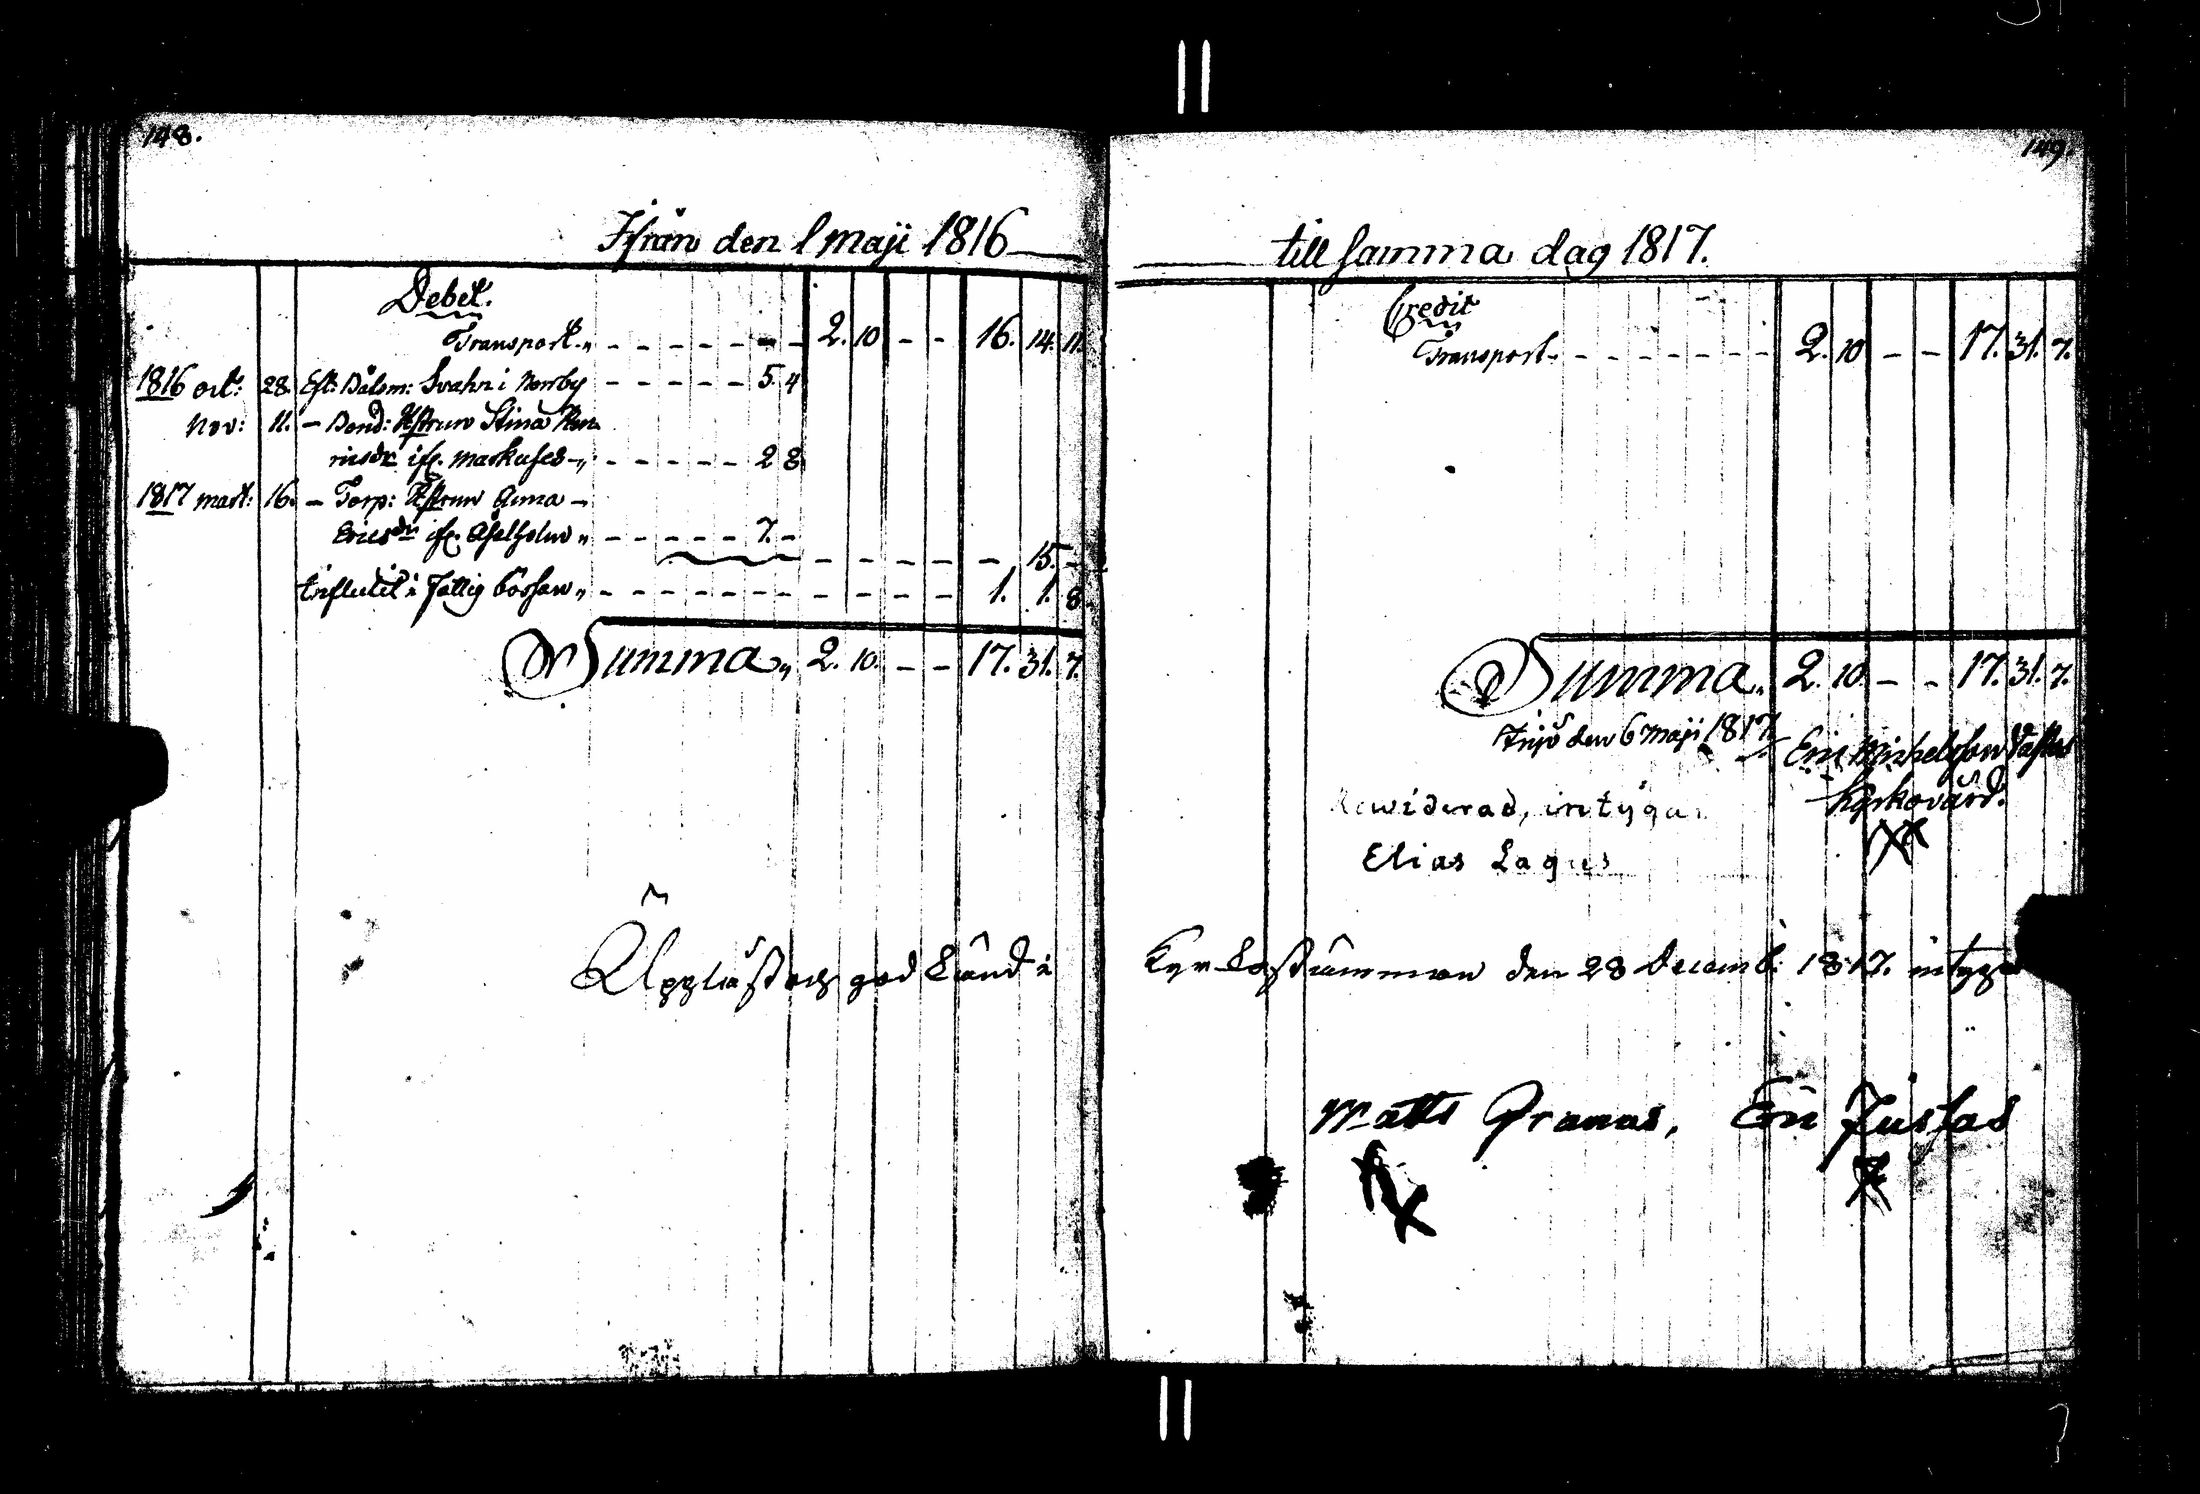 148.
Ifrån den 1 Maji 1816
Debet.
Transport „ - - - - - - - 2. 10 - - 16. 14. 11.
1816 oct: 28. Eft: Båtsm: Svahn i Norrby - - - - - 5. 4
Nov: 11. - Bond: Hustrun Stina Hen
ricsdr ifr. Markusas - „ - - - - - 2 8
1817 Mart: 16. - Torp: Hustrun Anna -
Ericsdr ifr. Afvelholm „ - - - - - 7. -
- - - - - - 15. -
Influtit i Fattig bössan „ - - - - - - - - - - - 1. 1. 8.
Summa „ 2. 10. - - 17. 31. 7.
Uppläst och god känd i
149.
till samma dag 1817.
Credit
Transport - - - - - - - 2. 10 - - 17. 31. 7.
Summa „ 2. 10. - - 17. 31. 7.
Iniö den 6 Maji 1817.
Eric Michelsson
Kyrkovärd.
Rewiderad, intygar
Elias Lagus
Kyrkostämman den 28 Decemb: 1817. intyga
Matts Granas, Eric Jusfas